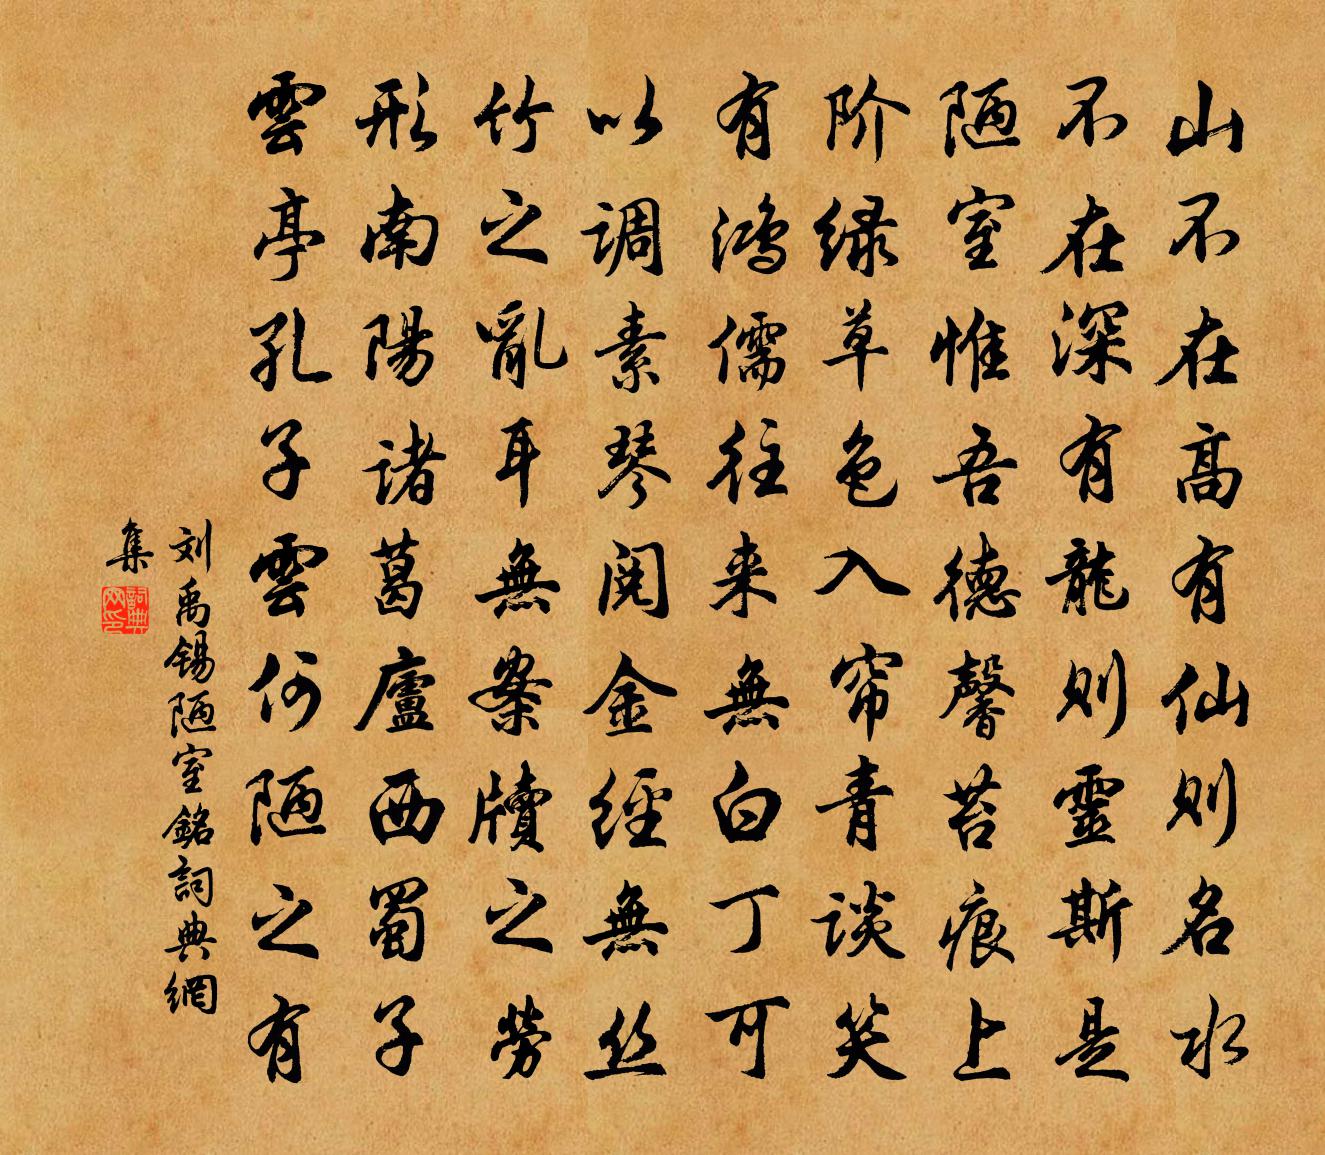 山不在高有仙则名水
不在深有龍则靈斯是
陋室惟吾德馨苔痕上
阶绿草色入帘青谈笑
有鸿儒往来無白丁可
以调素琴阅金經無丝
竹之亂耳無案牍之劳
形南陽诸葛廬西蜀子
雲亭孔子雲何陋之有
刘禹锡陋室銘詞典網
集
詞典
网印